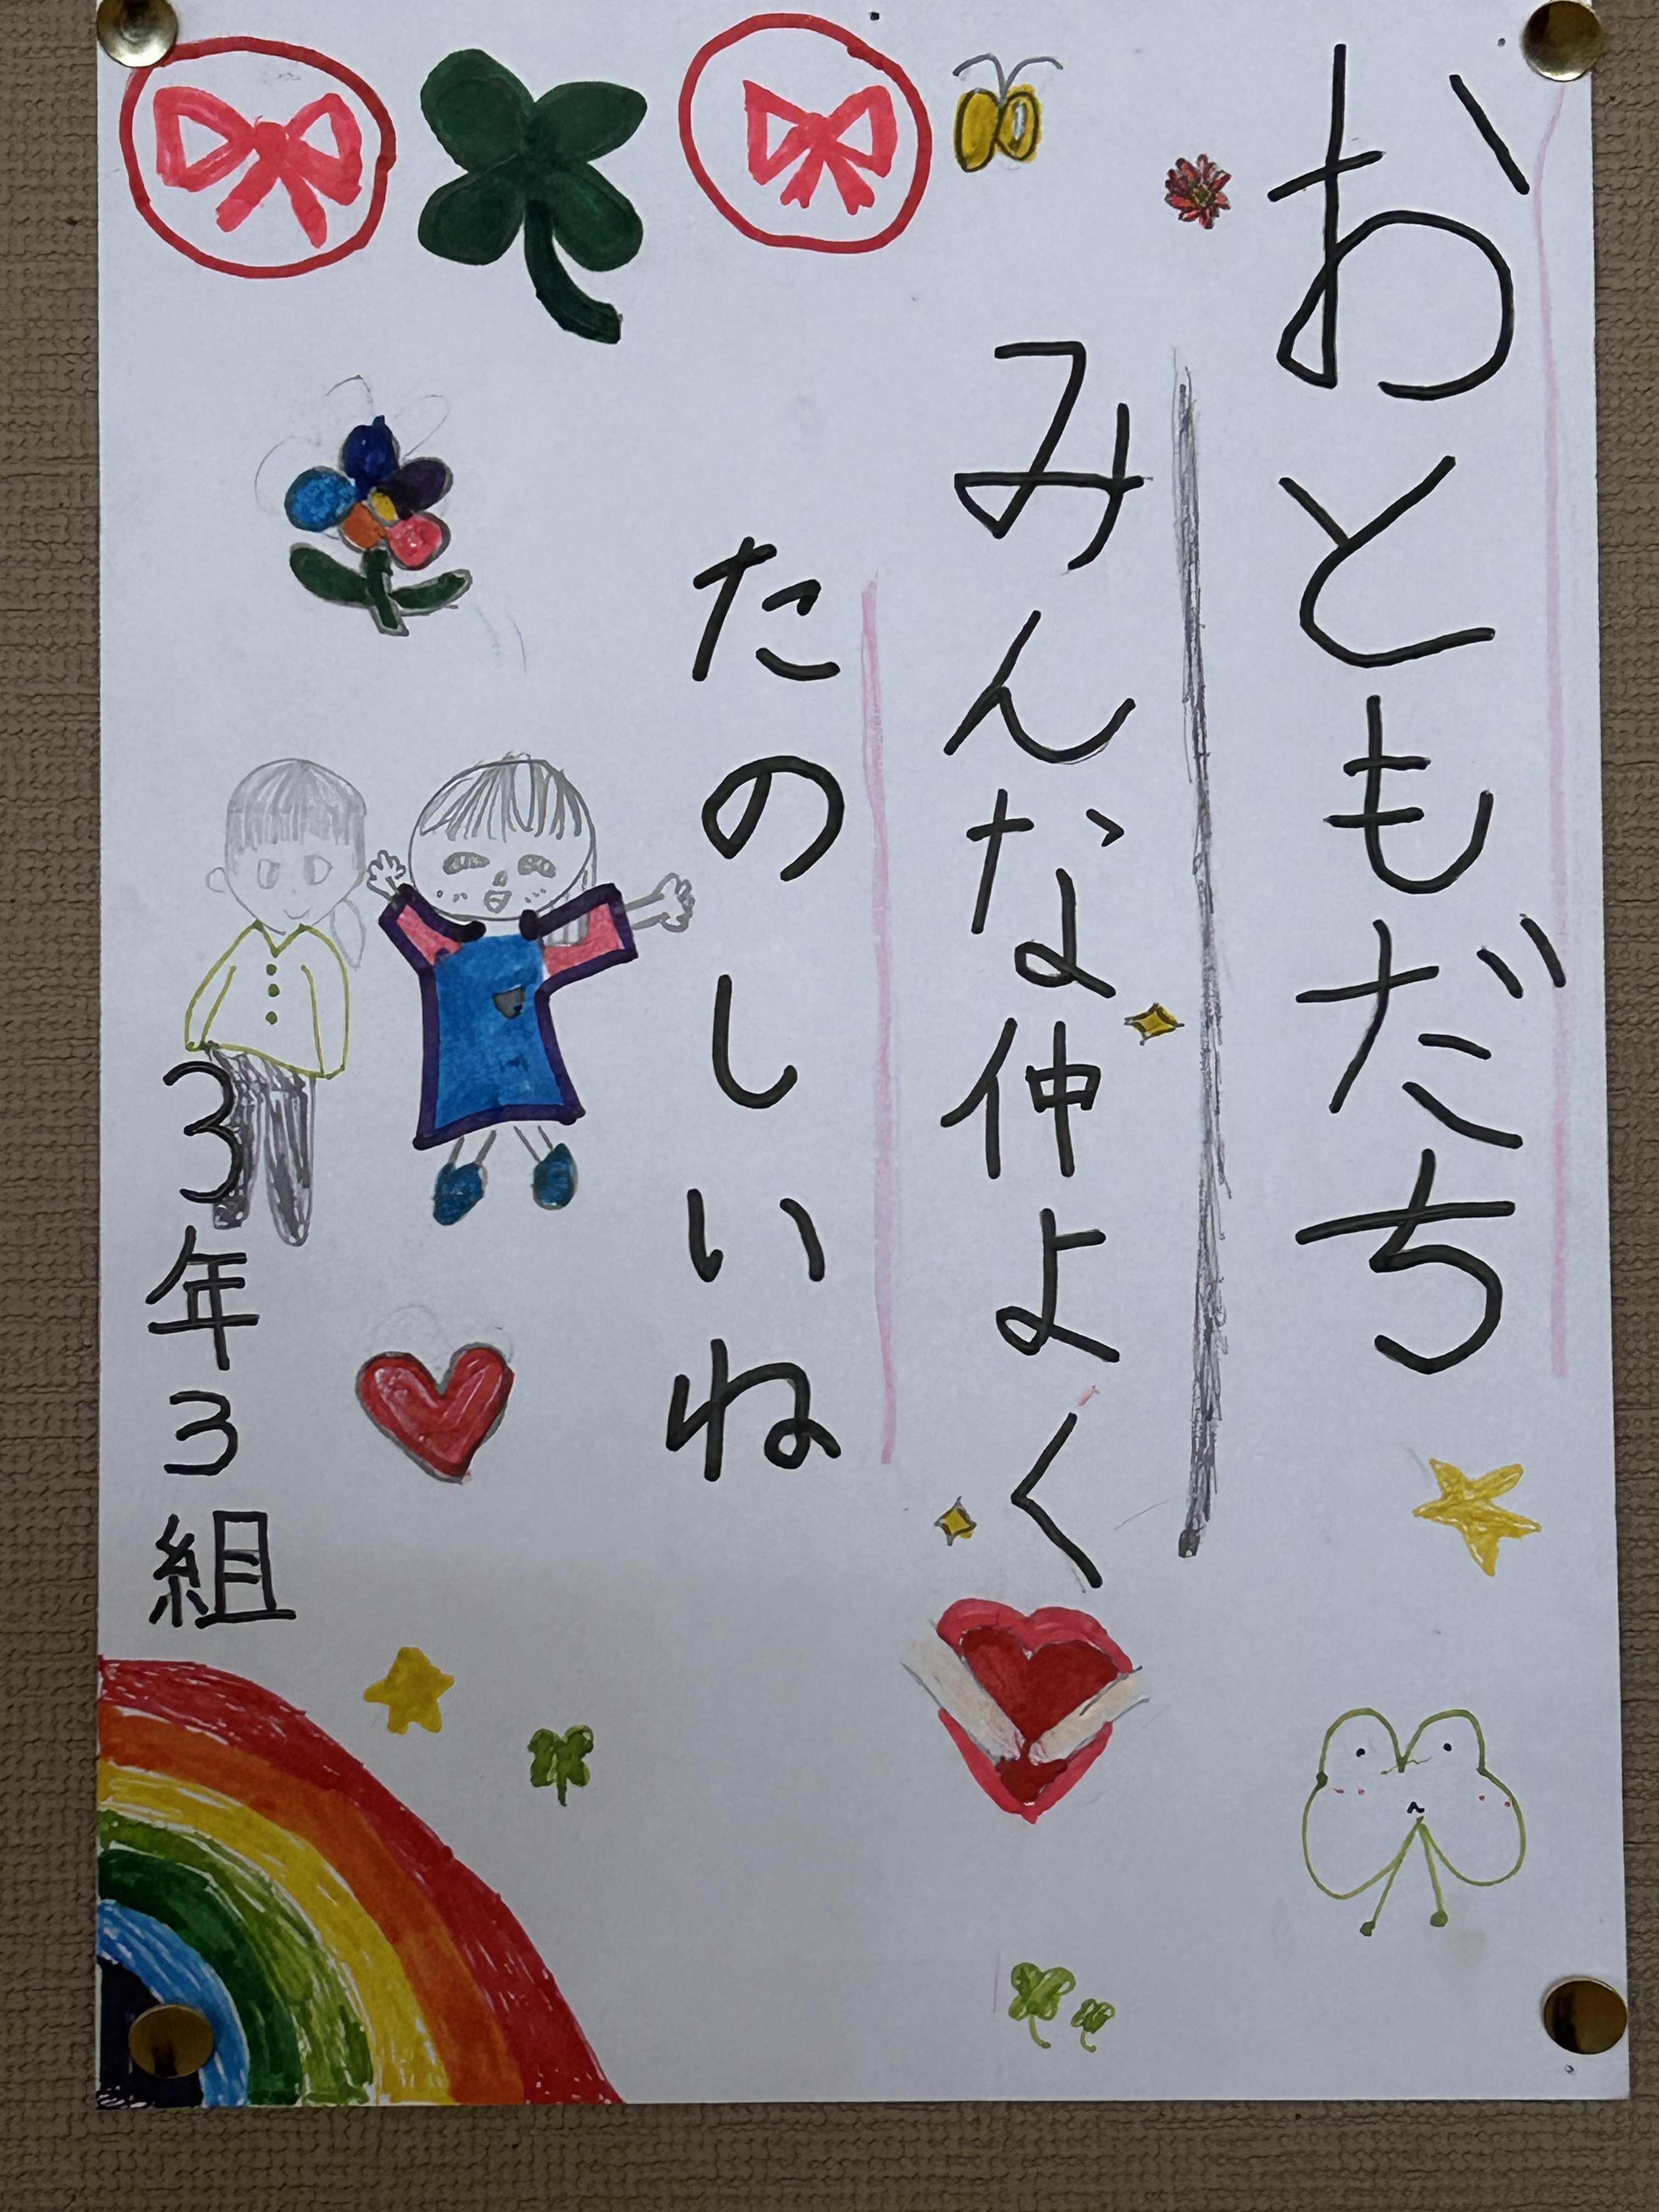 おともだち
みんな仲よく
たのしいね
3年3組